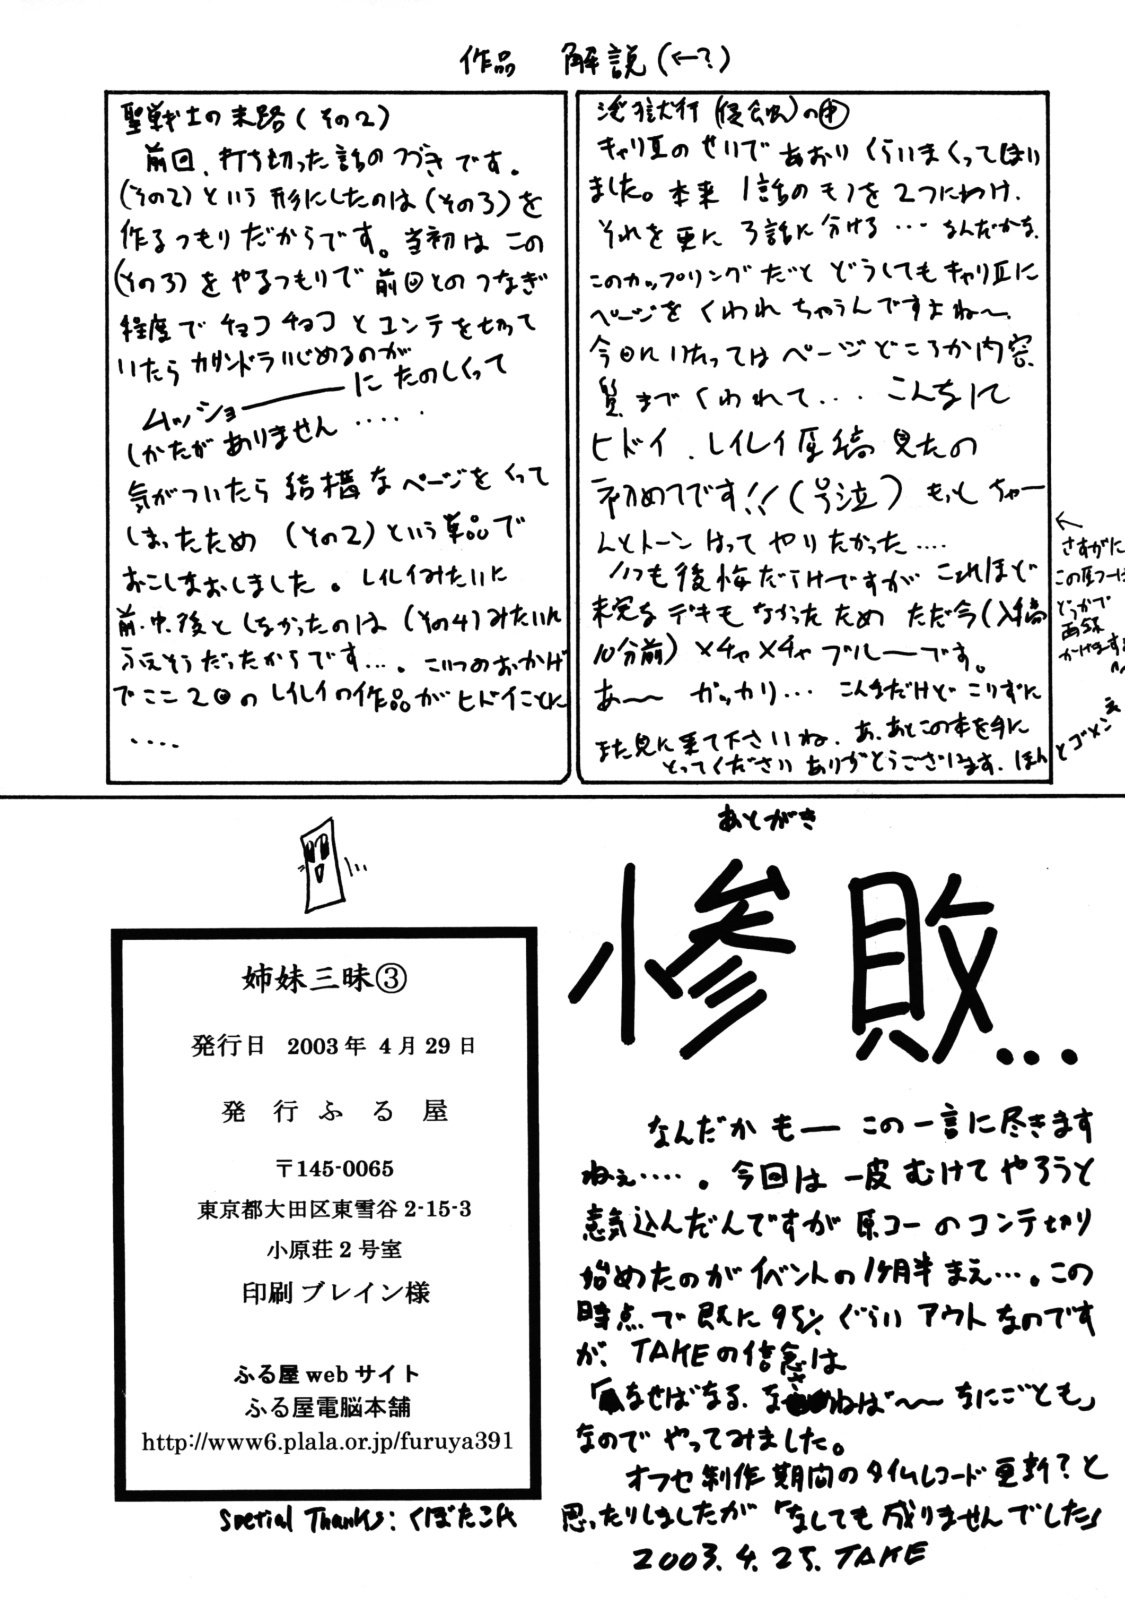 作品 解説(←?)
聖戦士の末路(その2)
前回、打ち切った話のつづきです。
(その2)という形にしたのは(その3)を
作るつもりだからです。当初はこの
(その3)をやるつもりで前回とのつなぎ
程度でチョコチョコとコンテを切って
いたらカサンドラいじめるのが
ムッショーーーーに たのしくって
しかたがありません‥‥‥
気がついたら結構なページをくって
しまったため (その2)という単品で
おこしなおしました。レイレイみたいに
前・中・後としなかったのは(その4)みたいに
ふえそうだったからです…。こいつのおかげ
でここ2回のレイレイの作品がヒドイことに
‥‥
淫獄行(侵食)の中
キャリエのせいで あおりくらいまくってまいり
ました。本来 1話のモノを2つにわけ、
それを更に 3話に分ける… なんだかな、
このカップリングだと どうしてもキャリエに
ページをくわれちゃうんですよね〜、
今回にいたってはページどころか内容、
質までくわれて‥‥ こんなに
ヒドイ、レイレイ原稿見たの
初めてです!!(号泣) もっとちゃー
んとトーンはってやりたかった‥‥
いつも後悔だらけですが これほど
未完なデキもなかったため ただ今(入稿
10分前)メチャメチャブルーです。
あ〜〜 ガッカリ… こんなだけど こりずに
また見に来て下さいね、あ、あとこの本を手に
とってくださいありがとうございます、ほんとゴメンネ
←
さすがに
この原コーは
どっかで
再録
かけますよ
あとがき
惨敗…
なんだか もー この一言に尽きます
ねぇ‥‥‥。今回は一皮むけてやろうと
意気込んだんですが原コーのコンテ切り
始めたのがイベントの1ヶ月半まえ…。この
時点で既に95%ぐらいアウトなのです
が、TAKEの信念は
「なせばなる、なさねば〜〜なにごとも」
なのでやってみました。
オフセ制作期間のタイムレコード更新?と
思ったりしましたが「なしても成りませんでした」
2003.4.25.TAKE
姉妹三昧③
発行日 2003年4月29日
発行ふる屋
〒145-0065
東京都大田区東雪谷2-15-3
小原荘2号室
印刷ブレイン様
ふる屋webサイト
ふる屋電脳本舗
http://www6.plala.or.jp/furuya391
Special Thanks: くぼたこ